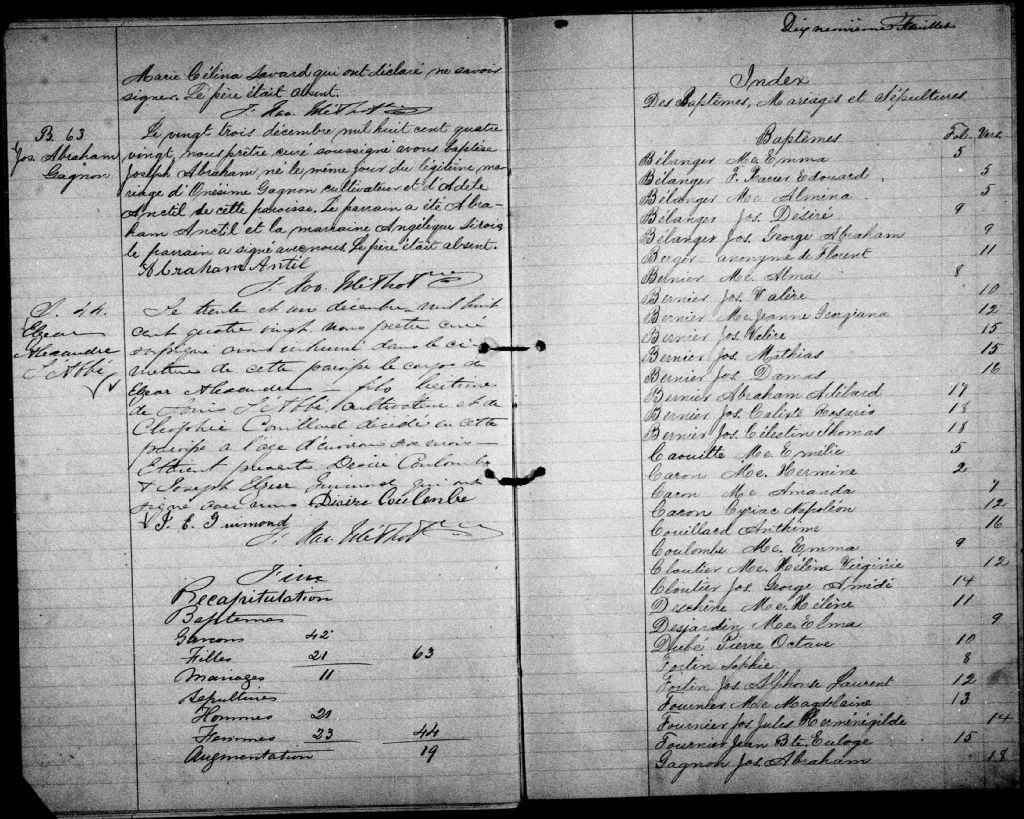 Marie Célina Savard qui ont déclaré ne savoir
signer. Le père était absent.
F. Xav. Méthot Ptre
B. 63
Jos. Abraham
Gagnon
Le vingt trois décembre mil huit cent quatre
vingt, nous prêtre curé soussigné avons baptisé
Joseph Abraham, né le même jour du légitime ma-
riage d'Onésime Gagnon cultivateur et d'Adèle
Anctil de cette paroisse. Le parrain a été Abra-
ham Anctil et la marraine Angélique Sirois
le parrain a signé avec nous. Le père était absent.
Abraham Antil
F. Xav. Méthot Ptre
S. 44.
Elzear
Alexandre
L'Abbé
Le trente et un décembre mil huit
cent quatre vingt nous pretre curé
soussigné avons inhumé dans le cime-
tière de cette paroisse le corps de
Elzear Alexandre fils légitime
de Louis L'Abbé, cultivateur et de
Cleophée Couillard décédé en cette
paroisse a l'age d'environ six mois
Etaient presents Desiré Coulombe
& Joseph Elzear Guimond qui ont
signé avec nous Disire Coulenbe
J. E. Guimond
F. Xav. Méthot Ptre
Fin
Recapitulation
Baptemes
Garcons 42
Filles 21 63
Mariages 11
Sepultures
Hommes 21
Femmes 23 44
Augmentation 19
Dix neuvième Feuillet
Index
Des Baptêmes, Mariages et Sépultures
Baptêmes Fol. Vers.
Bélanger Me. Emma 5
Bélanger F. Xavier Edouard 5
Bélanger Me. Almina 5
Bélanger Jos. Désiré 9
Bélanger Jos. George Abraham 9
Berger anonyme de Florent 11
Bernier Me. Alma 8
Bernier Jos. Valère 10
Bernier Me. Jeanne Georgiana 12
Bernier Jos. Valère 15
Bernier Jos. Mathias 15
Bernier Jos. Damas 16
Bernier Abraham Adélard 17
Bernier Jos. Calixte Rosario 18
Bernier Jos. Célestin Thomas 18
Caouitte Me. Emélie 5
Caron Me. Hermine 2
Caron Me. Amanda 7
Caron Cyriac Napoléon 12
Couillard Anthime 16
Coulombe Me. Emma 9
Cloutier Me. Hélène Virginie 12
Cloutier Jos. George Amédé 14
Deschêne Me. Hélène 11
Desjardin Me. Elma 9
Dubé Pierre Octave 10
Fortin Sophie 8
Fortin Jos. Alphonse Laurent 12
Fournier Me. Magdelaine 13
Fournier Jos. Jules Herménégilde 14
Fournier Jean Bte. Euloge 15
Gagnon Jos. Abraham 18